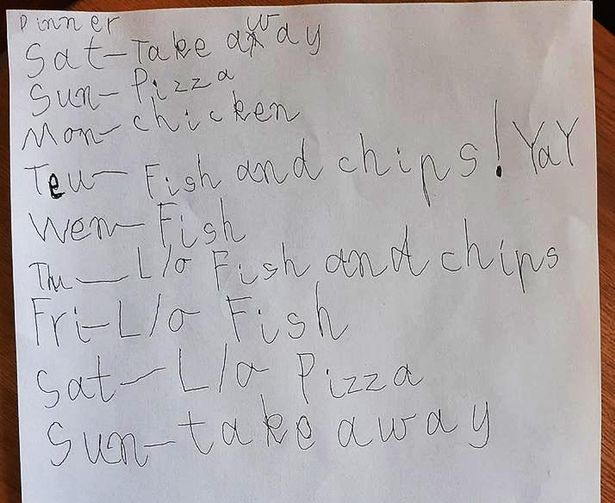 Dinner
Sat-Take away
Sun-Pizza
Mon-chicken
Teu-Fish and chips! YaY
Wen-Fish
Thu-L/o Fish and chips
Fri-L/o Fish
Sat-L/o Pizza
Sun-take away